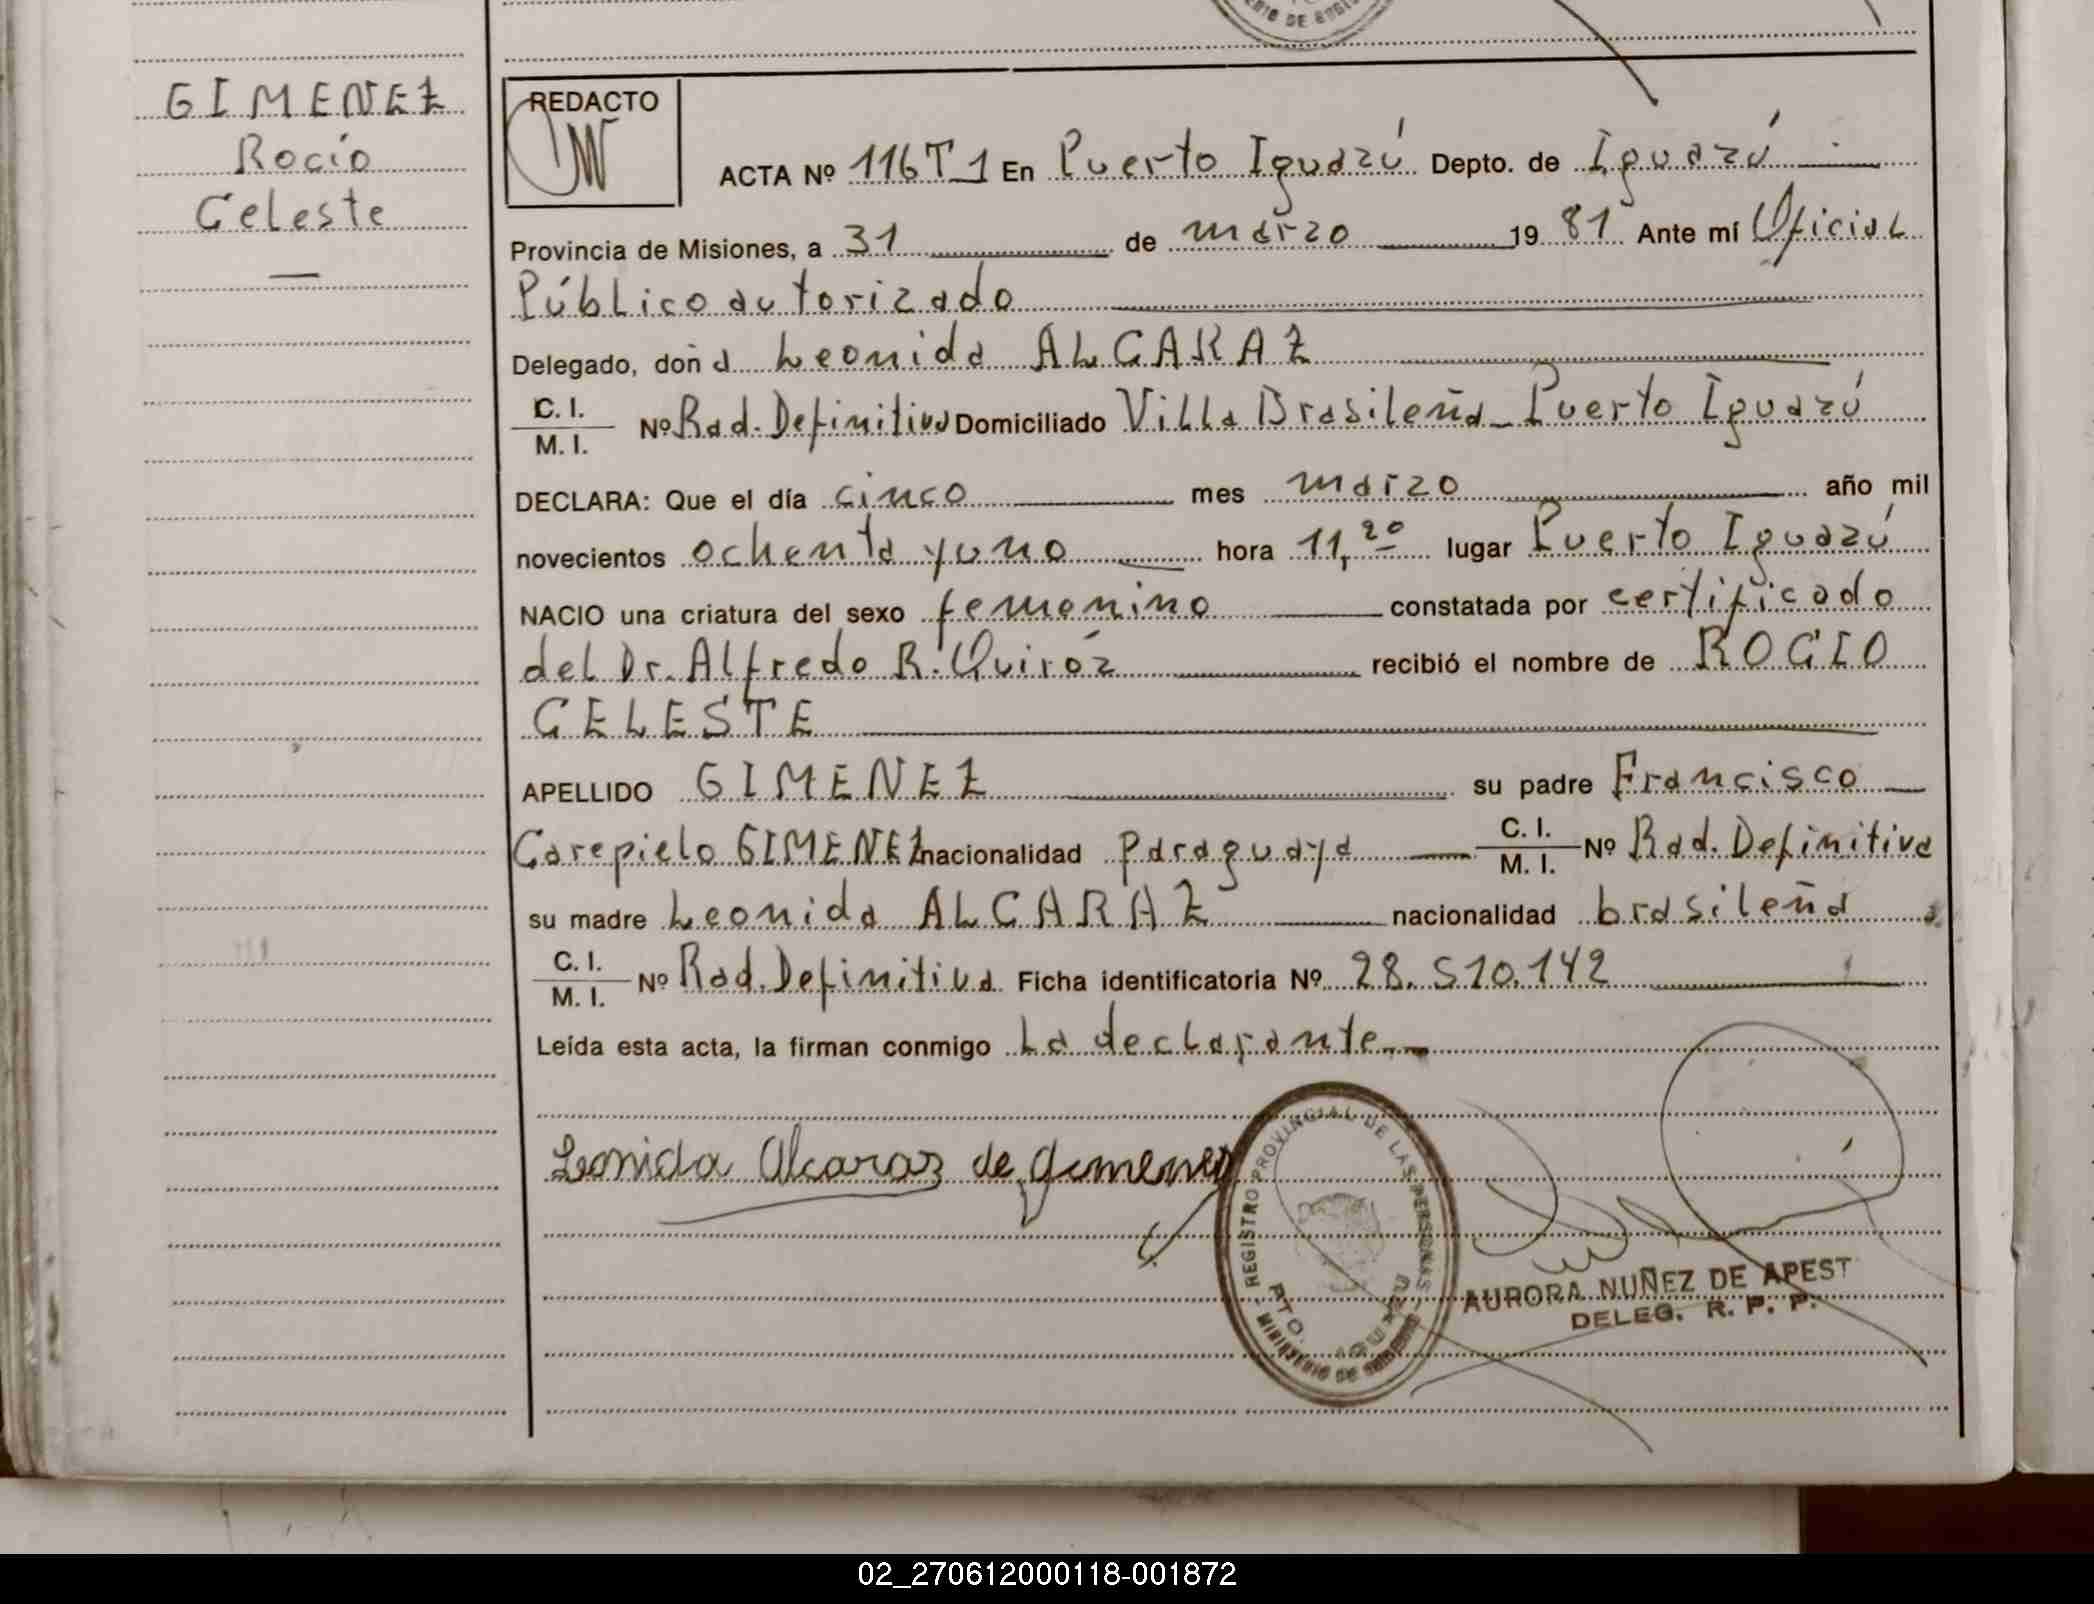 GIMENEZ
Rocío
Celeste
REDACTO
ACTA Nº 116T1 En Puerto Iguazú Depto. de Iguazú
Provincia de Misiones, a 31 de marzo 1981 Ante mí Oficial
Público autorizado
Delegado, doña Leonida ALCARAZ
C. I.
M. I. Nº Rad. Definitiva Domiciliado Villa Brasileña - Puerto Iguazú
DECLARA: Que el día cinco mes marzo año mil
novecientos ochenta y uno hora 11,20 lugar Puerto Iguazú
NACIO una criatura del sexo femenino constatada por certificado
del Dr. Alfredo R. Quiróz recibió el nombre de ROCIO
CELESTE
APELLIDO GIMENEZ su padre Francisco
Carepielo GIMENEZ nacionalidad paraguaya C. I. M. I. Nº Rad. Definitiva
su madre Leonida ALCARAZ nacionalidad brasileña
C. I.
M. I. Nº Rad. Definitiva Ficha identificatoria Nº 28.510.142
Leída esta acta, la firman conmigo la declarante.-
Leonida Alcaraz de Gimenez
REGISTRO PROVINCIAL DE LAS PERSONAS
PTO. IGUAZU
MINISTERIO DE GOBIERNO
AURORA NUÑEZ DE APEST
DELEG. R. P. P.
02_270612000118-001872